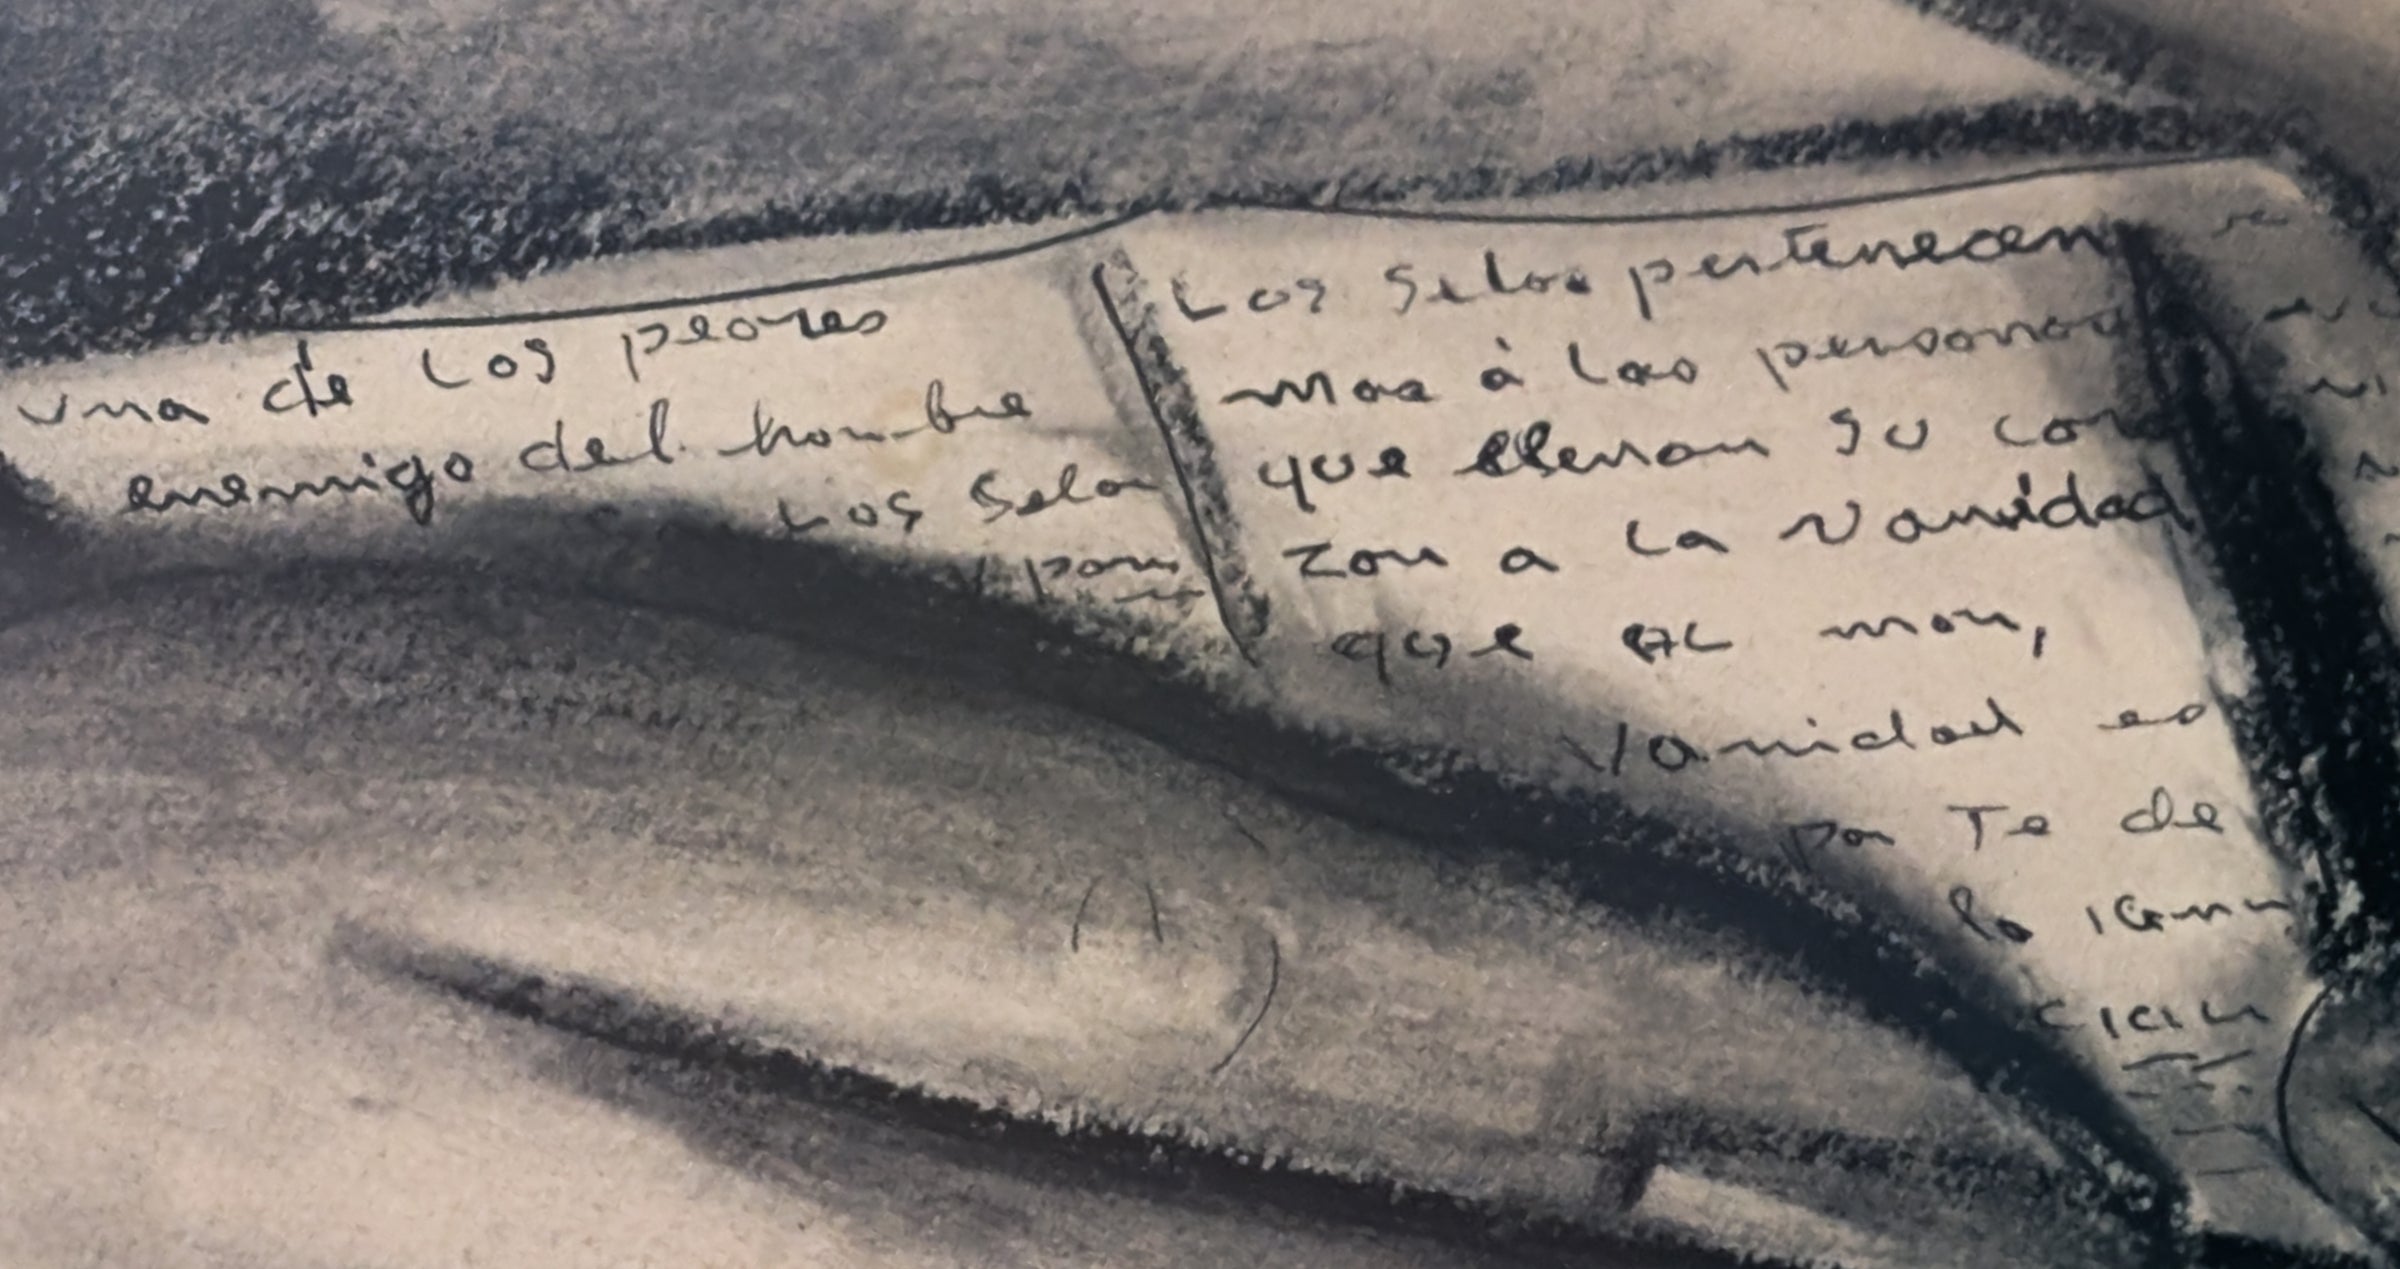 una de Los peores
enemigo del hombre
Los Selos
Los Selos pertenecen
mas à las personas
que llevan su cora
zon a la vanidad
que al mor,
Vanidad es
por Te de
la